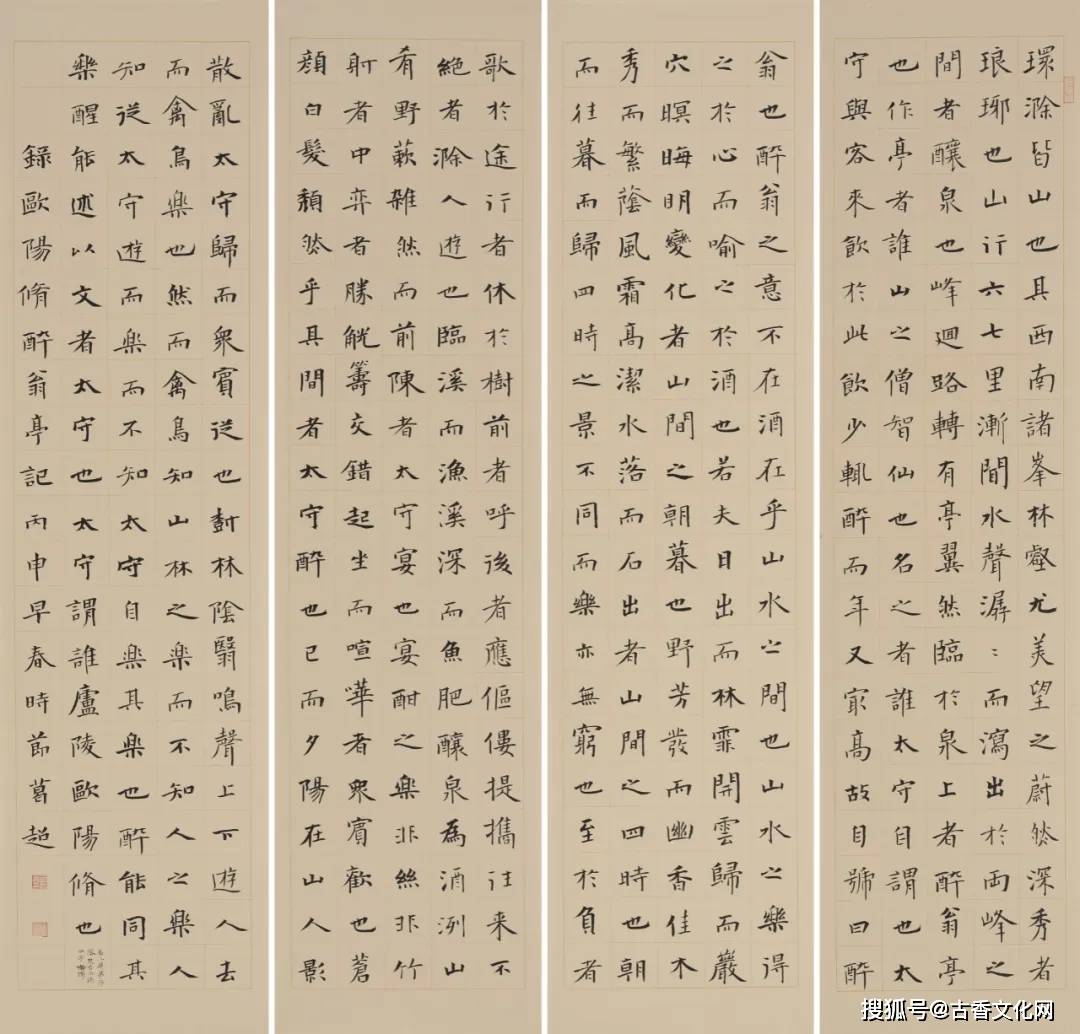 環滁皆山也其西南諸峯林壑尤美望之蔚然深秀者
琅琊也山行六七里漸聞水聲潺〻而瀉出於兩峰之
間者釀泉也峰迴路轉有亭翼然臨於泉上者醉翁亭
也作亭者誰山之僧智仙也名之者誰太守自謂也太
守與客來飲於此飲少輒醉而年又冣高故自號曰醉
翁也醉翁之意不在酒在乎山水之間也山水之樂得
之於心而喻之於酒也若夫日出而林霏開雲歸而巖
穴暝晦明變化者山間之朝暮也野芳發而幽香佳木
秀而繁蔭風霜高潔水落而石出者山間之四時也朝
而往暮而歸四時之景不同而樂亦無窮也至於負者
歌於途行者休於樹前者呼後者應傴僂提攜往来不
絕者滁人遊也臨溪而漁溪深而魚肥釀泉為酒洌山
肴野蔌雜然而前陳者太守宴也宴酣之樂非絲非竹
射者中弈者勝觥籌交錯起坐而喧嘩者衆賓歡也蒼
顏白髮頹然乎其間者太守醉也已而夕陽在山人影
散亂太守歸而衆賓從也樹林陰翳鳴聲上下遊人去
而禽鳥樂也然而禽鳥知山林之樂而不知人之樂人
知從太守遊而樂而不知太守自樂其樂也醉能同其
樂醒能述以文者太守也太守謂誰廬陵歐陽脩也
錄歐陽脩醉翁亭記丙申早春時節葛超
搜狐号@古香文化网